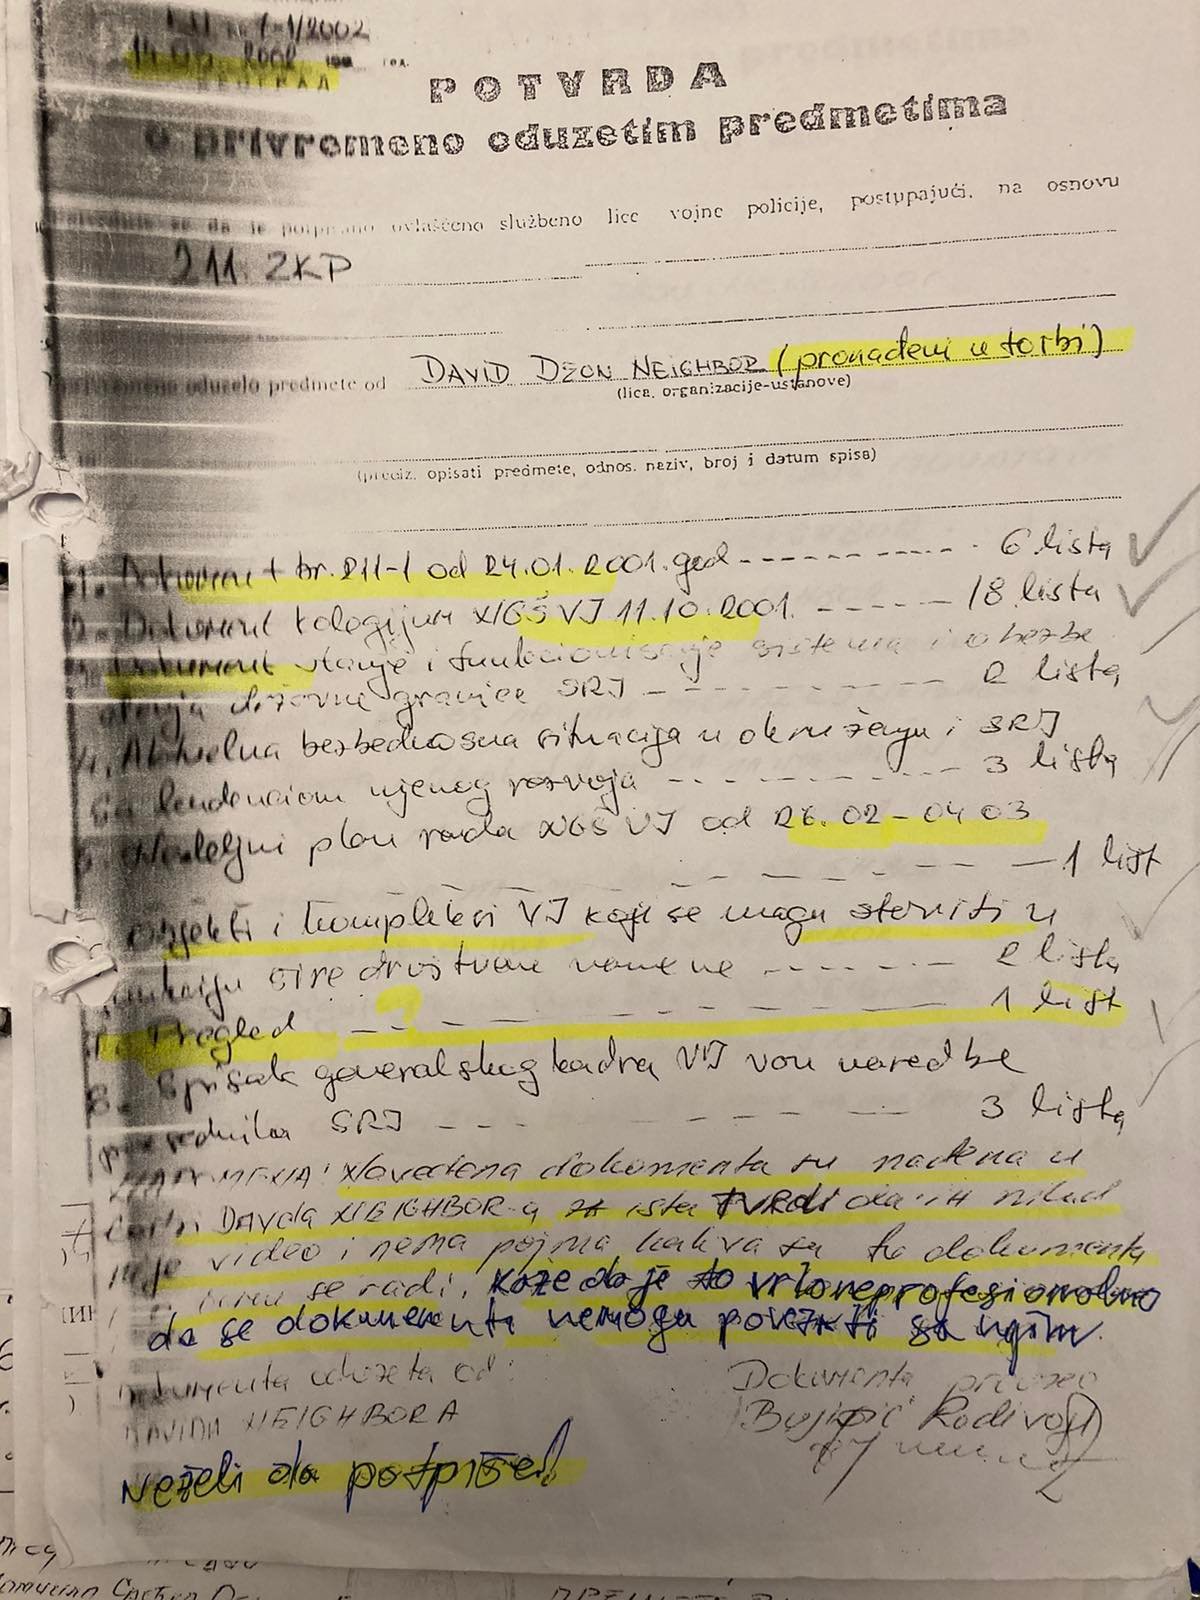 1-1/2002
14.03. 2002 god.
BEOGRAD
POTVRDA
o privremeno oduzetim predmetima
da je potpisano ovlašćeno službeno lice vojne policije, postupajući, na osnovu
211. ZKP
oduzelo predmete od DAVID DŽON NEIGHBOR (pronađeni u torbi)
(lica, organizacije-ustanove)
(preciz. opisati predmete, odnos. naziv, broj i datum spisa)
1. Dokument br. 211-1 od 24.01.2001. god ----------- 6 lista
2. Dokument kolegijum NGŠ VJ 11.10.2001. ------ 18 lista
3. Dokument stanje i funkcionisanje sistema i obezbe
đenja državne granice SRJ ---------- 2 lista
4. Aktuelna bezbednosna situacija u okruženju i SRJ
sa tendencijom njenog razvoja ---------- 3 lista
5. Nedeljni plan rada NGŠ VJ od 26.02-04 03
------ 1 list
Objekti i kompleksi VJ koji se mogu staviti u
funkciju šire društvene namene ------- 2 lista
7. Pregled ---------- 1 list
8. Spisak generalskog kadra VJ van naredbe
predsednika SRJ ---------- 3 lista
Navedena dokumenta su nađena u
torbi DAVIDA NEIGHBOR-a za ista tvrdi da ih nikad
nije video i nema pojma kakva su to dokumenta
se radi. Kaže da je to vrlo neprofesionalno
da se dokumenti nemogu povezati sa njim.
Dokumenta oduzeta od: Dokumenta preuzeo
DAVIDA NEIGHBORA Radivoj
Neželi da potpiše!